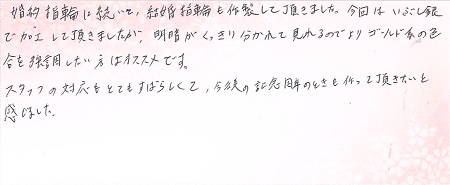 婚約指輪に続いて、結婚指輪も作製して頂きました。今回はいぶし銀
で加工して頂きましたが、明暗がくっきり分かれて見れるのでよりゴールド系の色
合を強調したい方はオススメです。
スタッフの対応もとてもすばらしくて、今後の記念周年のときも作って頂きたいと
感じました。